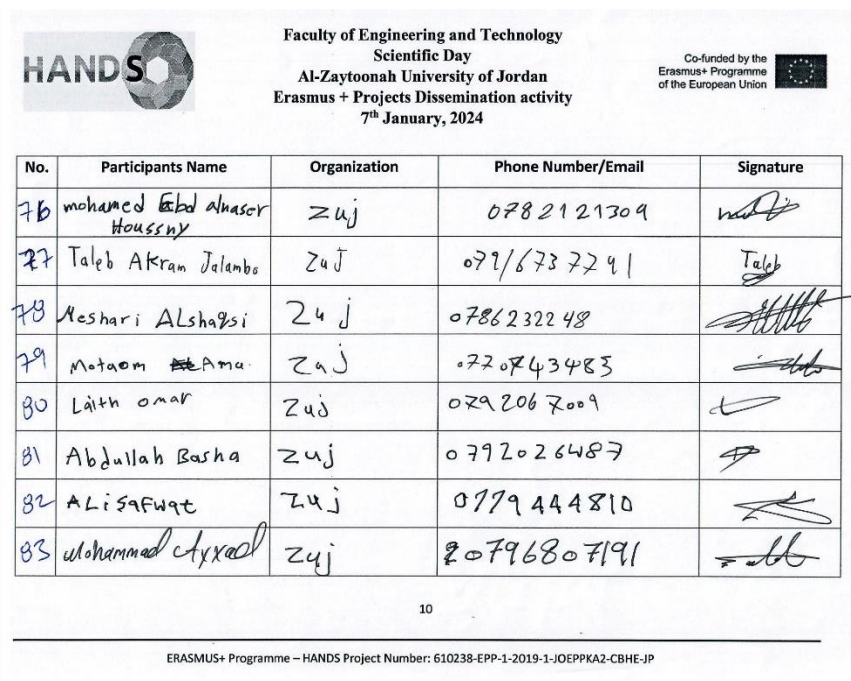 HANDS
Faculty of Engineering and Technology
Scientific Day
Al-Zaytoonah University of Jordan
Erasmus + Projects Dissemination activity
7th January, 2024
Co-funded by the
Erasmus+ Programme
of the European Union
No. Participants Name Organization Phone Number/Email Signature
76 mohamed Ebd alnaser Houssny zuj 0782121309
77 Taleb Akram Jalambo ZuJ 079/6737791 Taleb
78 Meshari ALshaqsi Zuj 0786232248
79 Motaom Ama. Zuj 0770743485
80 Laith omar Zuj 0792067009
81 Abdullah Basha Zuj 0792026487
82 ALi Safwat Zuj 0779444810
83 Mohammad Ayyad Zuj 0796807191
10
ERASMUS+ Programme – HANDS Project Number: 610238-EPP-1-2019-1-JOEPPKA2-CBHE-JP